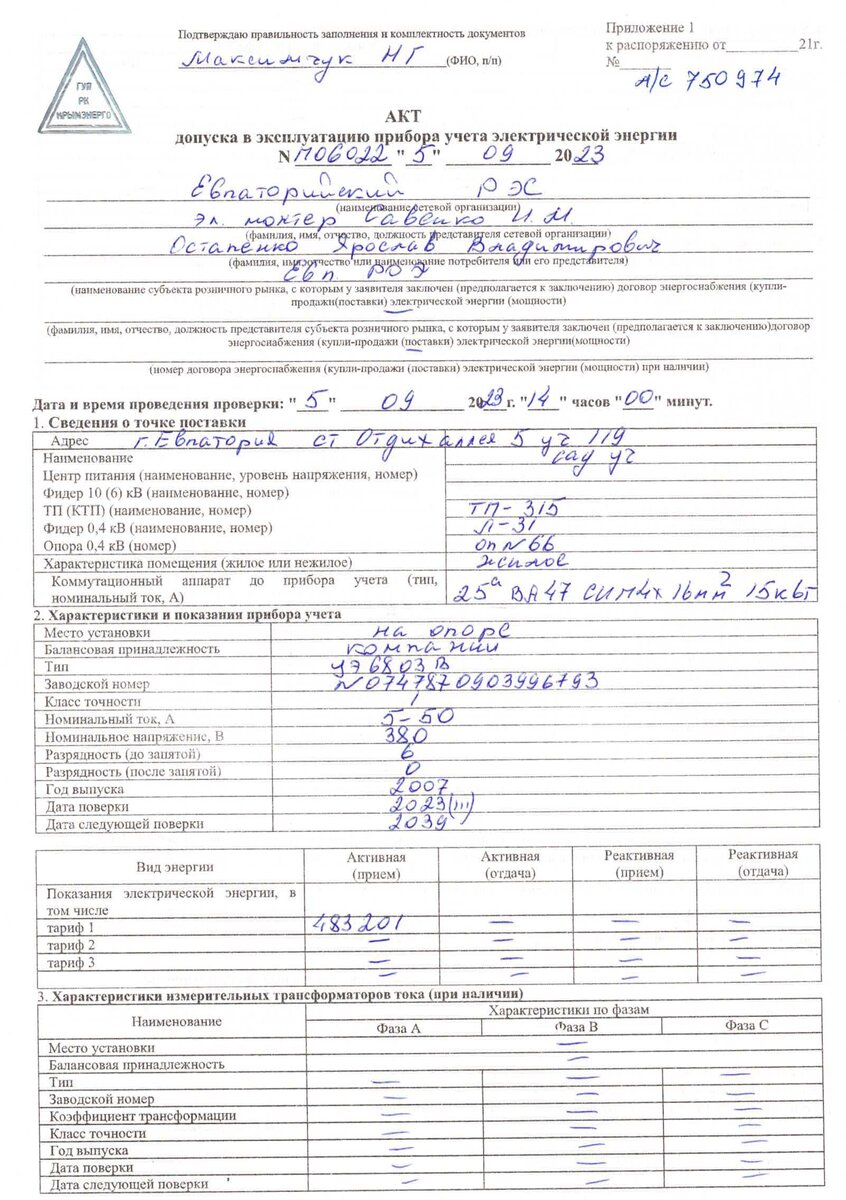 Подтверждаю правильность заполнения и комплектность документов
Максимчук НГ (ФИО, п/п)
Приложение 1
к распоряжению от__________21г.
№_______
А/С 750974
ГУП
РК
КРЫМЭНЕРГО
АКТ
допуска в эксплуатацию прибора учета электрической энергии
N П06022 "5" 09 2023
Евпаторийский РЭС
(наименование сетевой организации)
эл. монтер Савенко И.М.
(фамилия, имя, отчество, должность представителя сетевой организации)
Остапенко Ярослав Владимирович
(фамилия, имя, отчество или наименование потребителя или его представителя)
Евп РОЭ
(наименование субъекта розничного рынка, с которым у заявителя заключен (предполагается к заключению) договор энергоснабжения (купли-
продажи(поставки) электрической энергии (мощности)
—
(фамилия, имя, отчество, должность представителя субъекта розничного рынка, с которым у заявителя заключен (предполагается к заключению)договор
энергоснабжения (купли-продажи (поставки) электрической энергии(мощности)
—
(номер договора энергоснабжения (купли-продажи (поставки) электрической энергии (мощности) при наличии)
Дата и время проведения проверки: "5" 09 2023 г. "14" часов "00" минут.
1. Сведения о точке поставки
Адрес г. Евпатория ст Отдих аллея 5 уч 119
Наименование сад уч
Центр питания (наименование, уровень напряжения, номер)
Фидер 10 (6) кВ (наименование, номер)
ТП (КТП) (наименование, номер) ТП-315
Фидер 0,4 кВ (наименование, номер) Л-31
Опора 0,4 кВ (номер) оп N 66
Характеристика помещения (жилое или нежилое) жилое
Коммутационный аппарат до прибора учета (тип,
номинальный ток, А) 25а ВА47 СИП4х16мм2 15кВт
2. Характеристики и показания прибора учета
Место установки на опоре
Балансовая принадлежность компании
Тип ЦЭ6803В
Заводской номер N0747870903996793
Класс точности 1
Номинальный ток, А 5-50
Номинальное напряжение, В 380
Разрядность (до запятой) 6
Разрядность (после запятой) 0
Год выпуска 2007
Дата поверки 2023(III)
Дата следующей поверки 2039
Вид энергии Активная (прием) Активная (отдача) Реактивная (прием) Реактивная (отдача)
Показания электрической энергии, в
том числе
тариф 1 483201 — — —
тариф 2 — — — —
тариф 3 — — — —
— —
3. Характеристики измерительных трансформаторов тока (при наличии)
Наименование Характеристики по фазам
Фаза А Фаза В Фаза С
Место установки —
Балансовая принадлежность —
Тип — — —
Заводской номер — — —
Коэффициент трансформации — — —
Класс точности — — —
Год выпуска — — —
Дата поверки — — —
Дата следующей поверки — — —